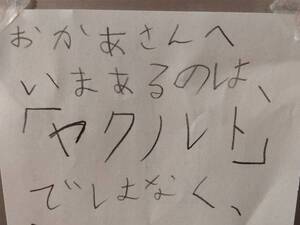 おかあさんへ
いまあるのは、
「ヤクルト」
ではなく、